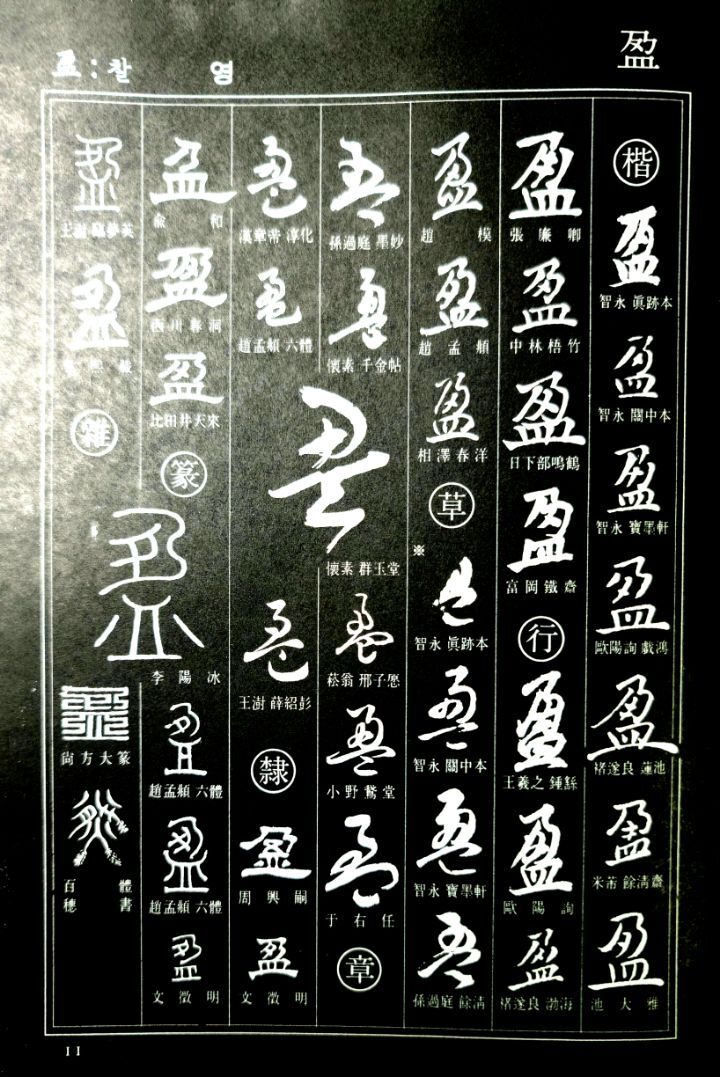 盈
盈:찰 영
楷
盈
智永 眞跡本
盈
智永 關中本
盈
智永 寶墨軒
盈
歐陽詢 戲鴻
盈
褚遂良 蓮池
盈
米芾 餘淸齋
盈
池大雅
盈
張廉卿
盈
中林梧竹
盈
日下部鳴鶴
盈
富岡鐵齋
行
盈
王羲之 鍾繇
盈
歐陽詢
盈
褚遂良 渤海
盈
趙模
盈
趙孟頫
盈
相澤春洋
草
※
盈
智永 眞跡本
盈
智永 關中本
盈
智永 寶墨軒
盈
孫過庭 餘淸
盈
孫過庭 墨妙
盈
懷素 千金帖
盈
懷素 群玉堂
盈
菘翁 邢子愿
盈
小野鵞堂
盈
于右任
章
盈
漢章帝 淳化
盈
趙孟頫 六體
盈
王澍 薛紹彭
隸
盈
周興嗣
盈
文徵明
盈
兪和
盈
西川春洞
盈
比田井天來
篆
盈
李陽冰
盈
趙孟頫 六體
盈
趙孟頫 六體
盈
文徵明
盈
王澍 臨夢英
盈
雜
盈
尙方大篆
盈
百體
穗書
11